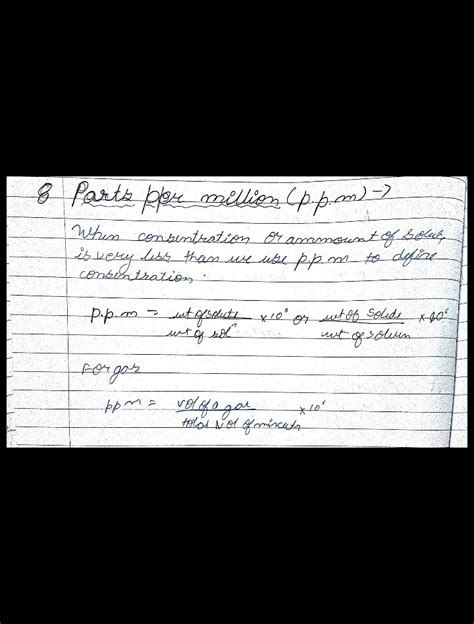 8 Parts per million (p.p.m) →
When consentration or ammount of solute
is very less than we use p.p.m to define
consentration.
p.p.m = wt of solute / wt of solⁿ × 10⁶ or wt of Solute / wt of solven × 10⁶
For gas
ppm = vol of a gas / total vol of × 10⁶